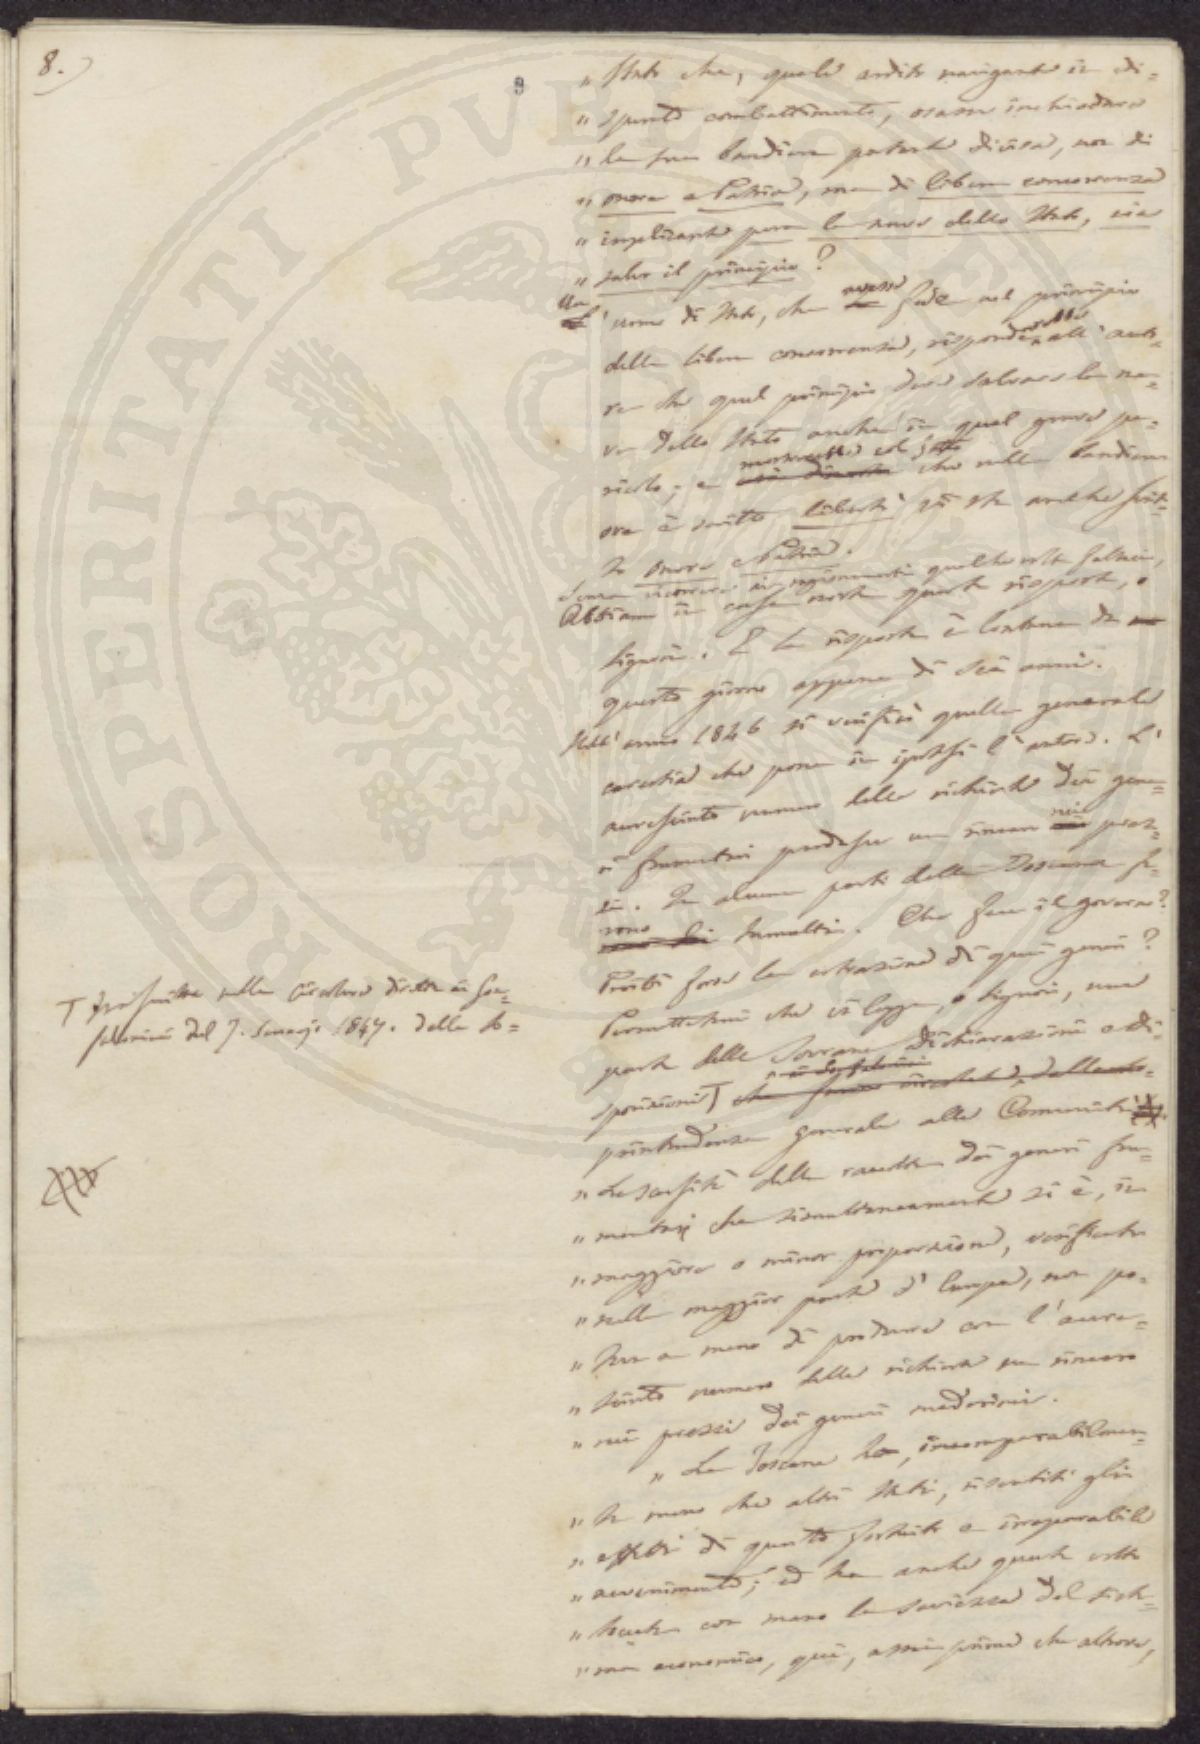 8.)
9
„ Stato che, quale ardito navigante in di=
„ sperato combattimento, osasse inchiodare
„ la sua bandiera portante divisa, non di
„ onore e Patria, ma di libera concorrenza
„ implicante pera la nave dello Stato, sia
„ salvo il principio?
Un uomo di Stato, che avesse fede nel principio
della libera concorrenza, risponderebbe all'auto=
re che quel principio deve salvare la na=
ve dello Stato anche in quel grave pe=
ricolo; e mostrerebbe col fatto che nella bandiera
ove è scritto libertà vi sta anche scrit=
to onore e Patria.
Senza ricorrere ai ragionamenti qualche volta fallaci,
Abbiamo in casa nostra questa risposta, o
Signori. E la risposta è lontana da
questo giorno appena di sei anni.
Nell'anno 1846 si verificò quella generale
carestia che pone in ipotesi l'autore. L'
accresciuto numero delle richieste dei gene=
ri frumentari produsse un rincaro nei prez=
zi. In alcune parti della Toscana fu=
rono tumulti. Che fece il governo?
Proibì forse la estrazione di quei generi?
Permettetemi che vi legga, o Signori, una
parte delle Sovrane dichiarazioni e di=
sposizioni T
T trasmesse nella Circolare diretta ai Gon=
falonieri del 7. Gennajo 1847. dalla So=
printendenza generale alle Comunità.
„ La scarsità della raccolta dei generi fru=
„ mentarj che simultaneamente si è, in
„ maggiore o minor proporzione, verificata
„ nella maggior parte d'Europa, non po=
„ teva a meno di produrre con l'accre=
„ sciuto numero delle richieste un rincaro
„ nei prezzi dei generi medesimi.
„ La Toscana ha, incomparabilmen=
„ te meno che altri Stati, risentiti gli
„ effetti di questo fortuito e irreparabile
„ avvenimento; ed ha anche questa volta
„ toccata con mano la saviezza del siste=
„ ma economico, qui, assai prima che altrove,